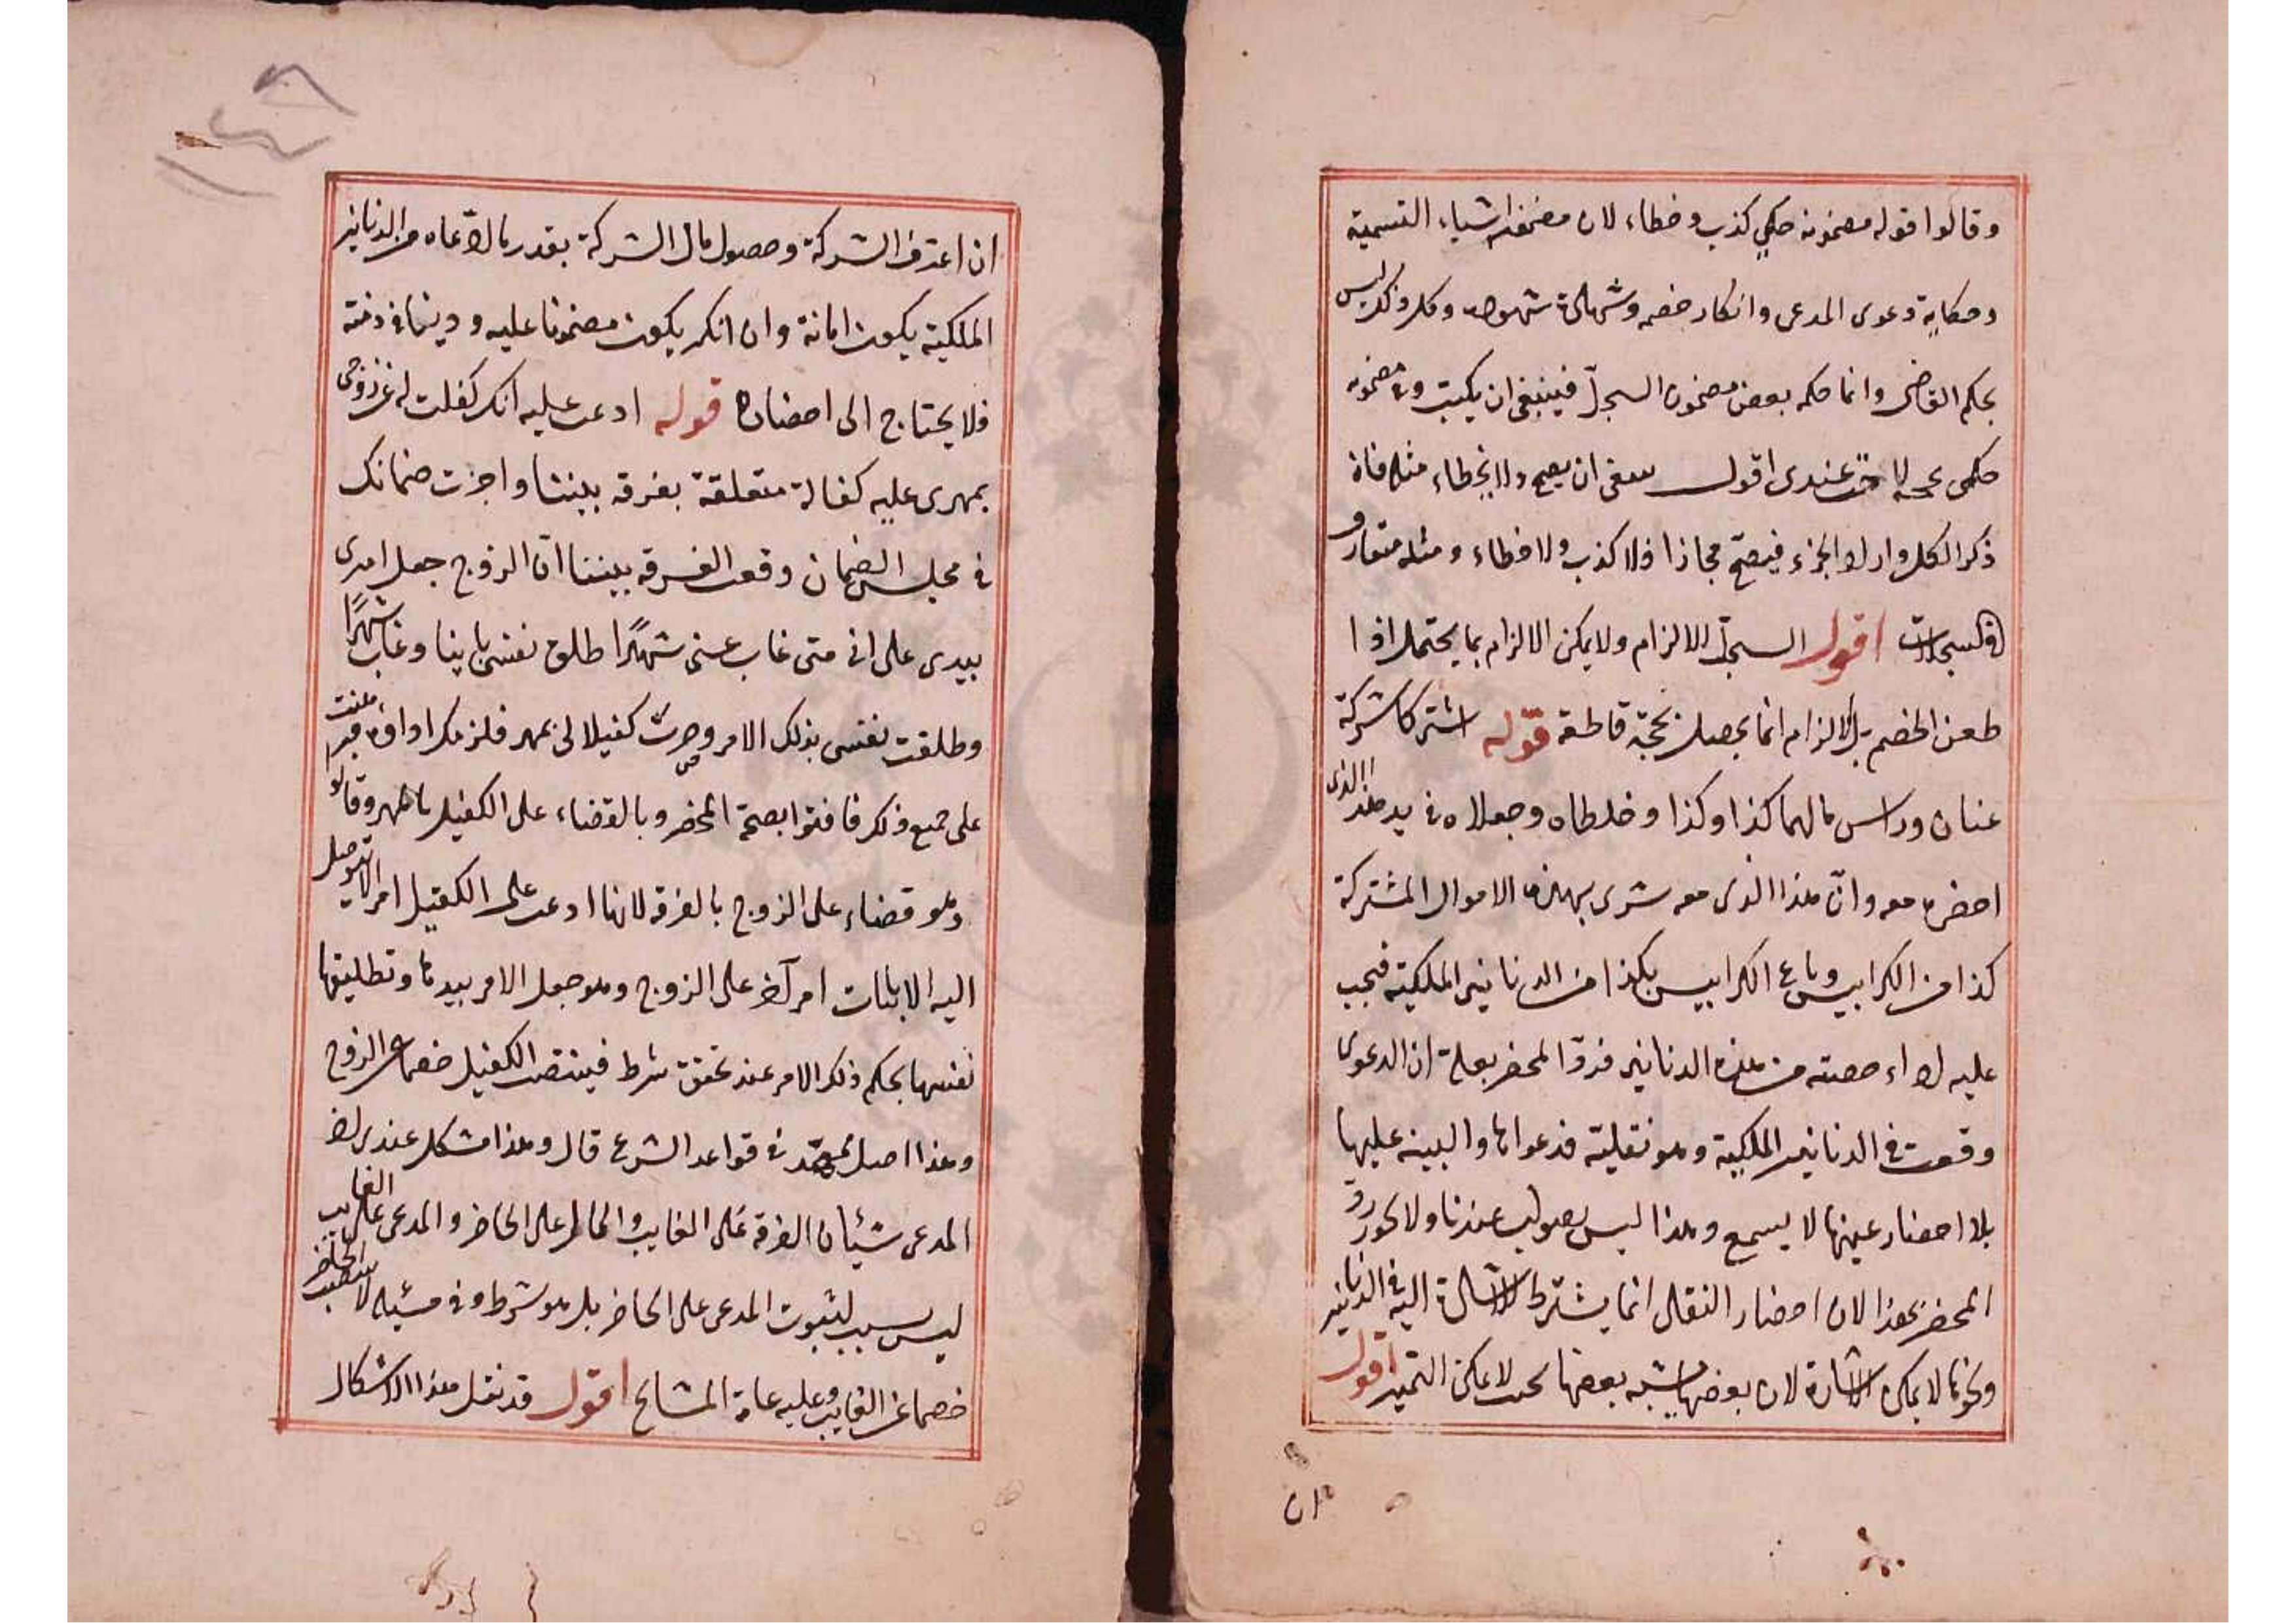 وقالوا قوله مضمونه حكمي كذب وخطاء لان مضمونه اشياء التسمية
وحكاية دعوى المدعى وانكار خصمه وشهادة شهوده وكل ذلك ليس
بحكم القاضى وانما حكمه بعض مضمون السجلّ فينبغى ان يكتب وفى مضمونه
حكمى عندى اقول ينبغى ان يصح ولا يخطاء مثله فانه
ذكر الكل واراد الجزء فيصحّ مجازا فلا كذب ولا خطاء ومثله متعارف
فى السجلات اقول السجلّ للالزام ولا يمكن الالزام بما يحتمل اذا
طعن الخصم بل الالزام انما يحصل بحجّة قاطعة قوله اشتركا شركة
عنان وراس مالهما كذا وكذا وخلطاه وجعلاه فى يد هذا الذى
احضره معه وانّ هذا الذى معه شرى بهذه الاموال المشتركة
كذا من الكرابيس وباع الكرابيس بكذا من الدنانير الملكية فيجب
عليه اداء حصته من هذه الدنانير فردّ المحضر بعلة ان الدعوى
وقعت فى الدنانير الملكية وهو نقلية فدعواها والبينة عليها
بلا احضار عينها لا يسمع وهذا ليس بصواب عندنا ولا يجوز ردّ
المحضر بهذا لان احضار النقال انما يشترط للاشارة اليه فى الدنانير
ونحوها لا يمكن الاشارة لان بعضها يشبه بعضها بحيث لا يمكن التميز اقول
ان
ان اعترف الشركة وحصول مال الشركة بقدر ما ادّعاه من الدنانير
الملكية يكون امانة وان انكر يكون مضمونا عليه ودينا فى ذمته
فلا يحتاج الى احضاره قوله ادعت عليه انك كفلت لى عن زوجى
بمهرى عليه كفالة متعلقة بفرقه بيننا واجزت ضمانك
فى مجلس الضمان وقعت الفرقه بيننا انّ الزوج جعل امرى
بيدى على انى متى غاب عنى شهرًا اطلق نفسى باينا وغاب شهرًا
وطلقت نفسى بذلك الامر وصرت كفيلا لى بمهر فلزمك اداؤه فبرهنت
على جميع ذلك فافتوا بصحة المحضر وبالقضاء على الكفيل بالمهر وقالوا
وهو قضاء على الزوج بالفرقه لانها ادعت على الكفيل امرا لا يتوصل
اليه الا باثبات امر آخر على الزوج وهو جعل الامر بيدها وتطليقها
نفسها بحكم ذلك الامر عند تحقق شرط فينتصب الكفيل خصما عن الزوج
وهذا اصل ممهّد فى قواعد الشرع قال وهذا مشكل عندى اذ
المدعى شيئان الفرقه على الغايب والمال على الحاضر والمدعى على الغايب
ليس بسبب لثبوت المدعى على الحاضر بل هو شرط وفى مثله لا ينتصب الحاضر
خصما عن الغايب وعليه عامة المشايخ اقول قد نقل هذا الاشكال